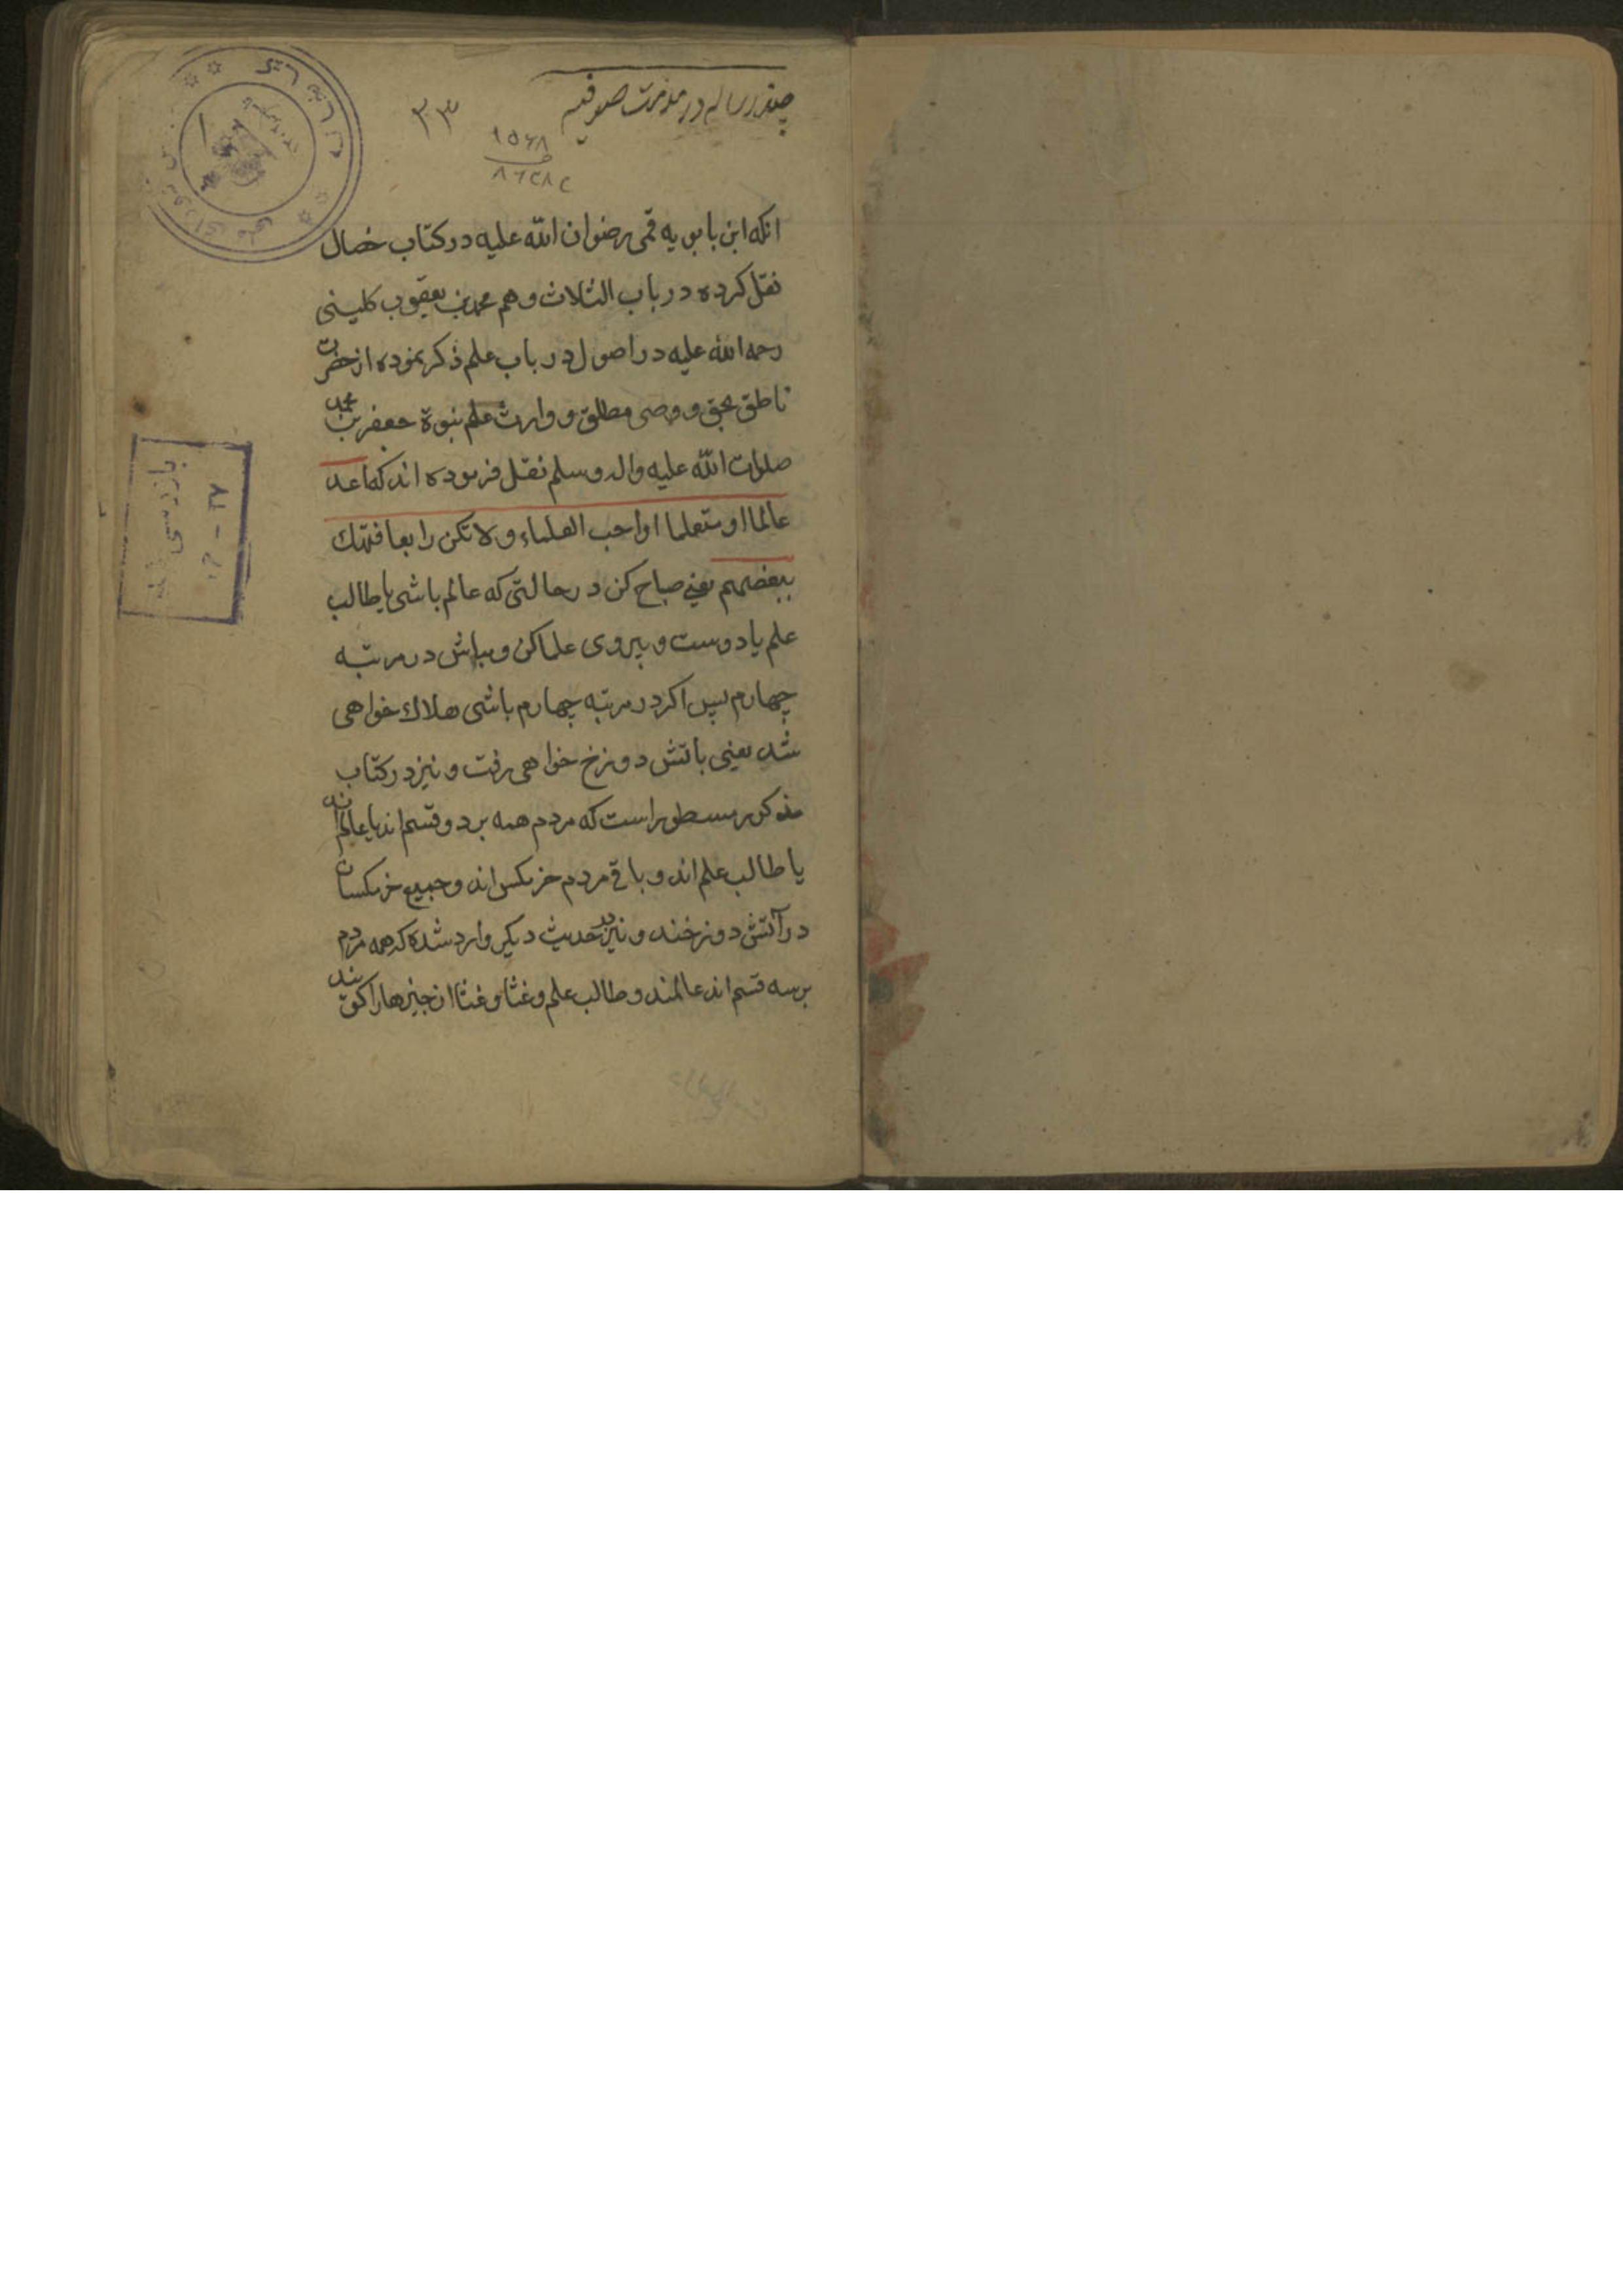 چند رساله در مذمت صوفیه
۳۳
۱۵۶۸
۸۶۲۸۲
انکه ابن بابویه قمی رضوان الله علیه در کتاب خصال
نقل کرده در باب الثلاث و هم محمد بن یعقوب کلینی
رحمه الله علیه در اصول در باب علم ذکر نموده از حضرت
ناطق بحق و وصی مطلق و وارث علم نبوة جعفر بن محمد
صلوات الله علیه واله وسلم نقل فرموده اند که اغد
عالما او متعلما او احب العلماء و لا تکن رابعا فتهلك
ببغضهم یعنی صباح کن در حالتی که عالم باشی یا طالب
علم یا دوست و پیروی علما کن و مباش در مرتبه
چهارم پس اکر در مرتبه چهارم باشی هلاك خواهی
شد یعنی باتش دوزخ خواهی رفت و نیز در کتاب
مذکور مسطور است که مردم همه بر دو قسم اند یا عالم اند
یا طالب علم اند و باقی مردم خرمکس اند و جمیع خرمکسان
در آتش دوزخند و نیز در حدیث دیکر وارد شده که همه مردم
بر سه قسم اند عالمند و طالب علم و غثا و غثا ان چیزها را کویند
بازرسی شد
۳۷ -